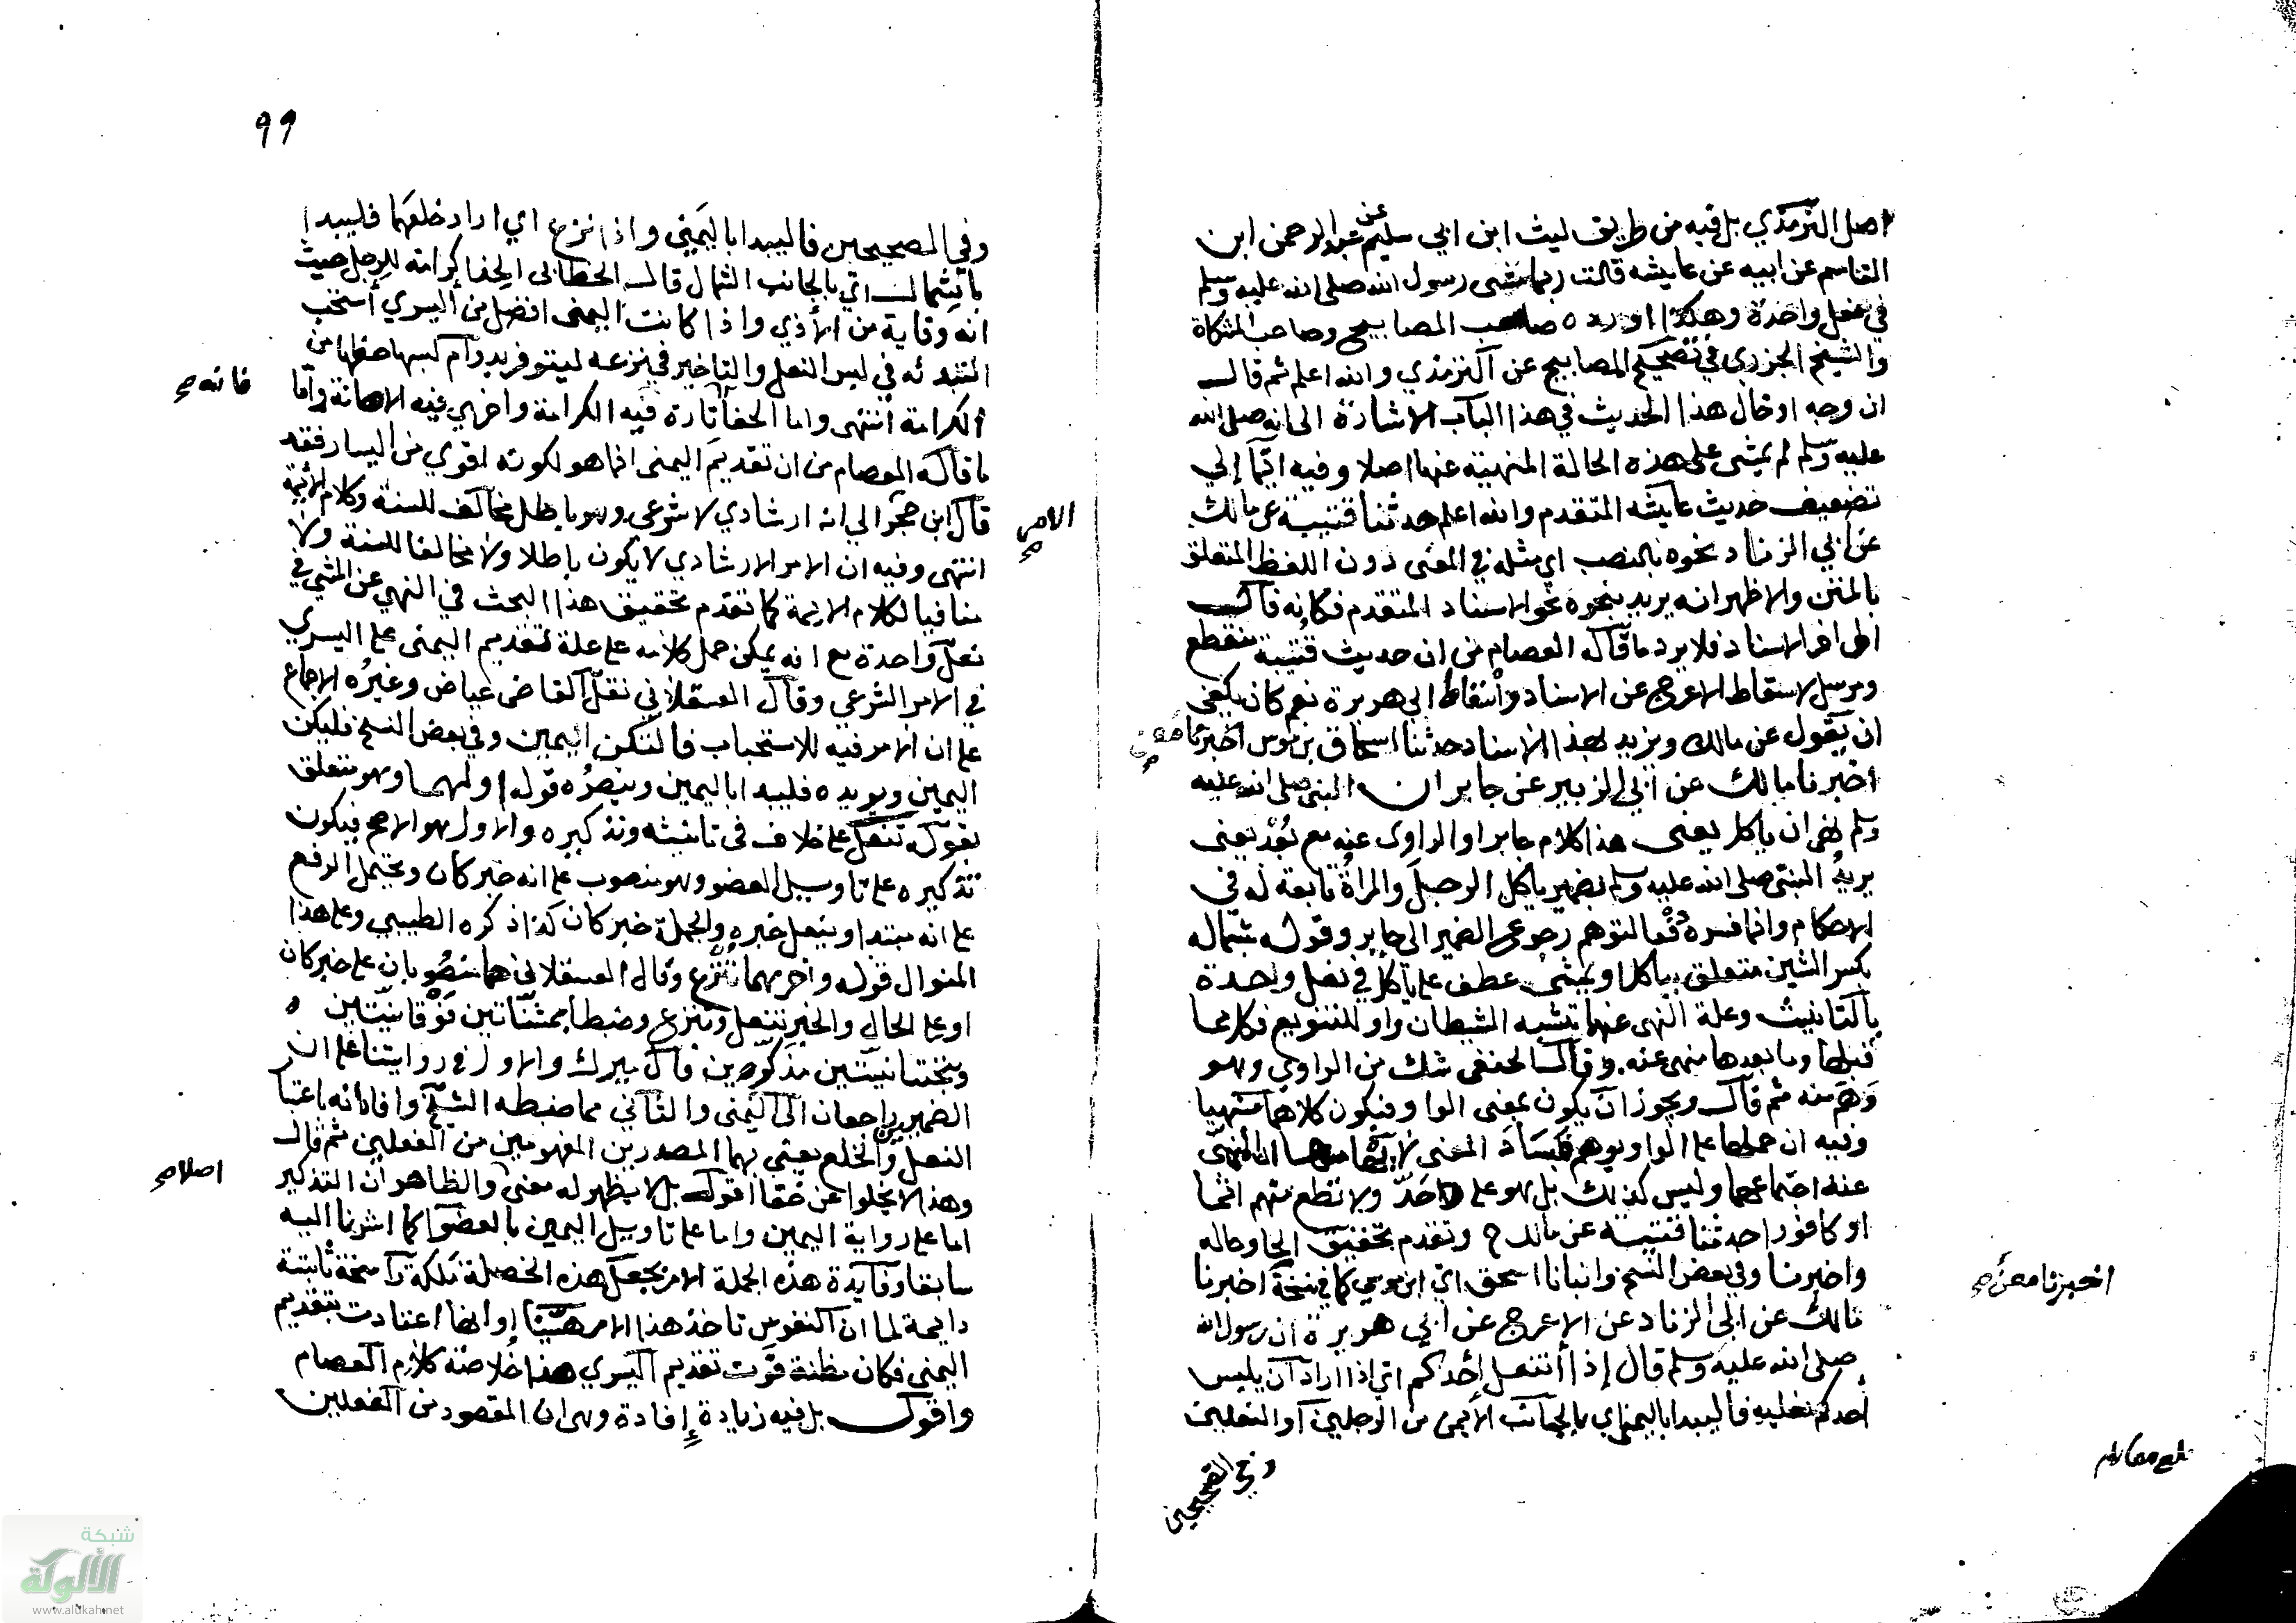 اصل الترمذي بل فيه من طريق ليث ابن ابي سليم عن عبد الرحمن ابن
القاسم عن ابيه عن عايشه قالت ربما مشى رسول الله صلى الله عليه وسلم
في نعل واحدة وهكذا اورده صاحب المصابيح وصاحب المشكاة
والشيخ الجزري في تصحيح المصابيح عن الترمذي والله اعلم ثم قال
ان وجه ادخال هذا الحديث في هذا الباب الاشارة الى انه صلى الله
عليه وسلم لم يمش على هذه الحالة المنهية عنها اصلا وفيه ايما إلي
تضعيف حديث عايشه المتقدم والله اعلم حدثنا قتيبة عن مالك
عن ابي الزناد نحوه بالنصب اي مثله في المعنى دون اللفظ المتعلق
بالمتن والاظهر انه يريد بنحوه نحو الاسناد المتقدم فكانه قال
الى اخر الاسناد فلا يرد ما قاله العصام من ان حديث قتيبة منقطع
ومرسل لاسقاط الاعرج عن الاسناد واسقاط ابي هريرة نعم كان يكفي
ان يقول عن مالك ويزيد بهذا الاسناد حدثنا اسحاق بن موسى اخبرنا معن
اخبرنا مالك عن ابي الزبير عن جابر ان النبي صلى الله عليه
وسلم نهى ان ياكل يعني هذا كلام جابر او الراوى عنه مع بعد يعنى
يريد النبي صلى الله عليه وسلم بضمير ياكل الرجل والمراة تابعة له في
الاحكام وانما فسره دفعا لتوهم رجوع الضمير الى جابر وقوله بشماله
بكسر الشين متعلق بياكل او يمشي عطف على ياكل في نعل واحدة
بالتانيث وعلة النهى عنها تشبه الشيطان واو للتنويع فكل مما
قبلها وما بعدها منهي عنه وقال الحنفي شك من الراوي وهو
وهم منه ثم قال ويجوز ان يكون بمعنى الواو فيكون كلاهما منهيا
وفيه ان حملها على الواو يوهم فساد المعنى لا المنهي
عنه اجتماعهما وليس كذلك بل هو على حد ولا تطع منهم اثما
او كفورا حدثنا قتيبة عن مالك ح وتقدم تحقيق الحا وحاله
واخبرنا وفي بعض النسخ وانبانا اسحق اي ابن موسى كما في نسخة اخبرنا
مالك عن ابي الزناد عن الاعرج عن ابي هريرة ان رسول الله
صلى الله عليه وسلم قال إذا أنتعل احدكم اي اذا اراد ان يلبس
أحدكم نعليه فاليبدا باليمنى اي بالجانب الأيمن من الرجلين او النعلين
وفي الصحيحين
اخبرنا معن صح
بلغ مقابلة
99
وفي الصحيحين فاليبدا باليمنى واذا نزع اي اراد خلعهما فليبدا
بالشمال اي بالجانب الشمال قال الخطابى الحذا كرامة للرجل حيث
انه وقاية من الأذي واذا كانت اليمنى افضل من اليسري أستحب
التبدئه في لبس النعل والتاخير في نزعه ليتوفر بدوام لبسها حظها من
الكرامة انتهى واما الخفا تارة فيه الكرامة واخرى فيه الاهانة واما
ما قاله العصام من ان تقديم اليمنى انما هو لكونه اقوي من اليسار فقد
قال ابن حجر الى انه ارشادي لا شرعي وهو باطل مخالف للسنة وكلام الائمة
انتهى وفيه ان الامر الارشادي لا يكون باطلا ولا مخالفا للسنة ولا
منافيا لكلام الايمة كما تقدم تحقيق هذا البحث في النهي عن المشي في
نعل واحدة مع انه يمكن حمل كلامه على علة تقديم اليمنى على اليسري
في الامر الشرعي وقال العسقلاني نقل القاضى عياض وغيره الاجماع
على ان الامر فيه للاستحباب فالتكن اليمين وفي بعض النسخ فليكن
اليمين ويويده فليبدا باليمين وينصره قوله اولهما وهو متعلق
بقوله تنعل على خلاف في تانيثه وتذكيره والاول هو الاصح فيكون
تذكيره على تاويل العضو وهو منصوب على انه خبر كان ويحتمل الرفع
على انه مبتدا وينعل خبره والجملة خبر كان كذا ذكره الطيبي وعلى هذا
المنوال قوله واخرهما تنزع وقال العسقلاني هما منصوبان على خبر كان
او على الحال والخبر تنعل وتنزع وضبطا بمثناتين فوقانيتين و
وبتحتانيتين مذكورين قال ميرك والاول في روايتنا على ان
الضميرين راجعان الى اليمنى والثاني مما ضبطه الشيخ وافاد انه باعتبا
النعل والخلع يعني بهما المصدرين المفهومين من الفعلين ثم قال
وهذا لا يخلوا عن خفا اقول بل لا يظهر له معنى والظاهر ان التذكير
اما على رواية اليمين واما على تاويل اليمين بالعضو كما اشرنا اليه
سابقا وفايدة هذه الجملة الامر بجعل هذه الخصلة ملكة راسخة ثابتة
دايمة لما ان النفوس تاخذ هذا الامر هينا او انها اعتادت بتقديم
اليمنى فكان مظنة فوت تقديم اليسري هذا خلاصة كلام العصام
واقول بل فيه زيادة إفادة وهى ان المقصود من الفعلين
فانه صح
الامر صح
اصلا صح
شبكة
الألوكة
www.alukah.net